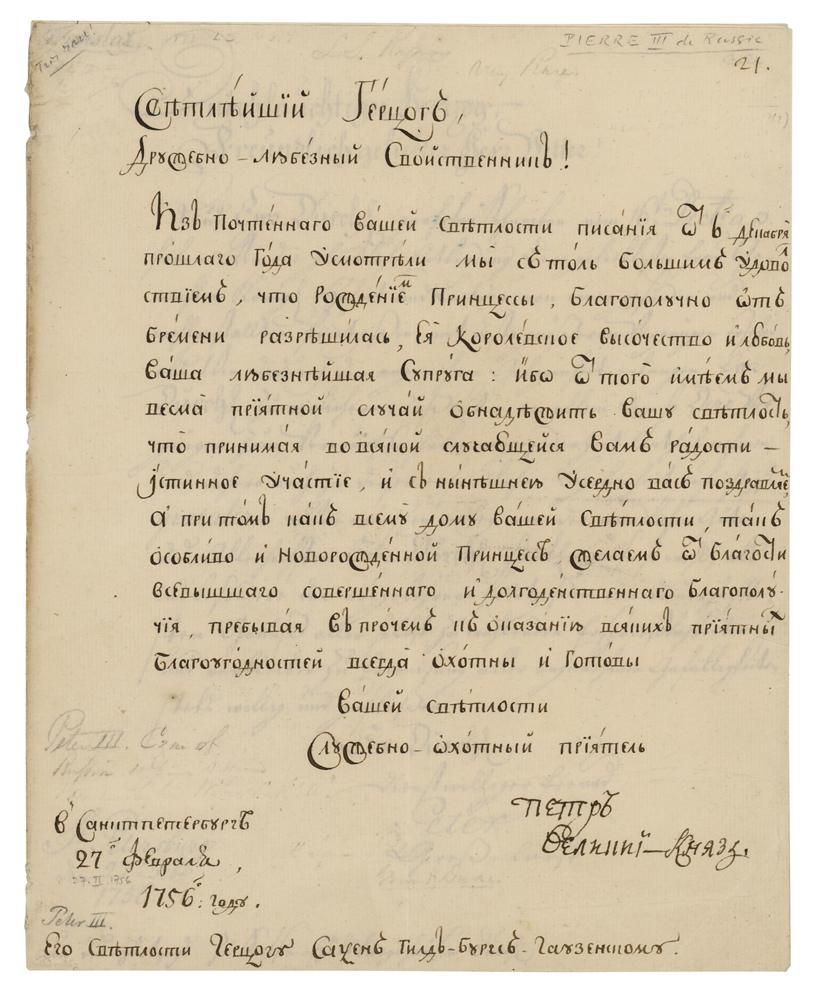 PIERRE III de Russie
21.
Very Rare
Свѣтлѣйшїй Герцогъ,
Дружебно-любезный Свойственникъ!
Изъ Почтеннаго вашей Свѣтлости писанїя ѿ 6 декабря
прошлаго Года Усмотрѣли мы съ толь большимъ Удовол
ствїемъ, что Рожденїем Принцессы, благополучно ѡтъ
бремени разрѣшилась, Ея Королевское высочество и любовь
Ваша любезнѣйшая Супруга: ибо ѿ того имѣемъ мы
весма прїятной случай обнадѣжить вашу свѣтлость,
что принимая во всякой случавшейся вамъ радости —
Истинное Участїе, и съ нынѣшнею Усердно васъ поздравляе
А притомъ какъ всему дому вашей Свѣтлости, такъ
особливо и Новорожденной Принцессѣ желаемъ ѿ благости
всевышшаго совершеннаго и долгоденственнаго благополу-
чїя, пребывая въ прочемъ къ оказанїю всякихъ прїятных
благоугодностей всегда охотны и Готовы
вашей свѣтлости
Служебно-ѡхотный прїятель
Петръ
Великий-Князь.
Peter III. Czar of
Russia
в Санктпетербургѣ
27 Февраля,
27. II 1756
1756: году.
Peter III.
Его Свѣтлости Герцогу Саксенъ Гилдъ-бургсъ-Гаузенскому.